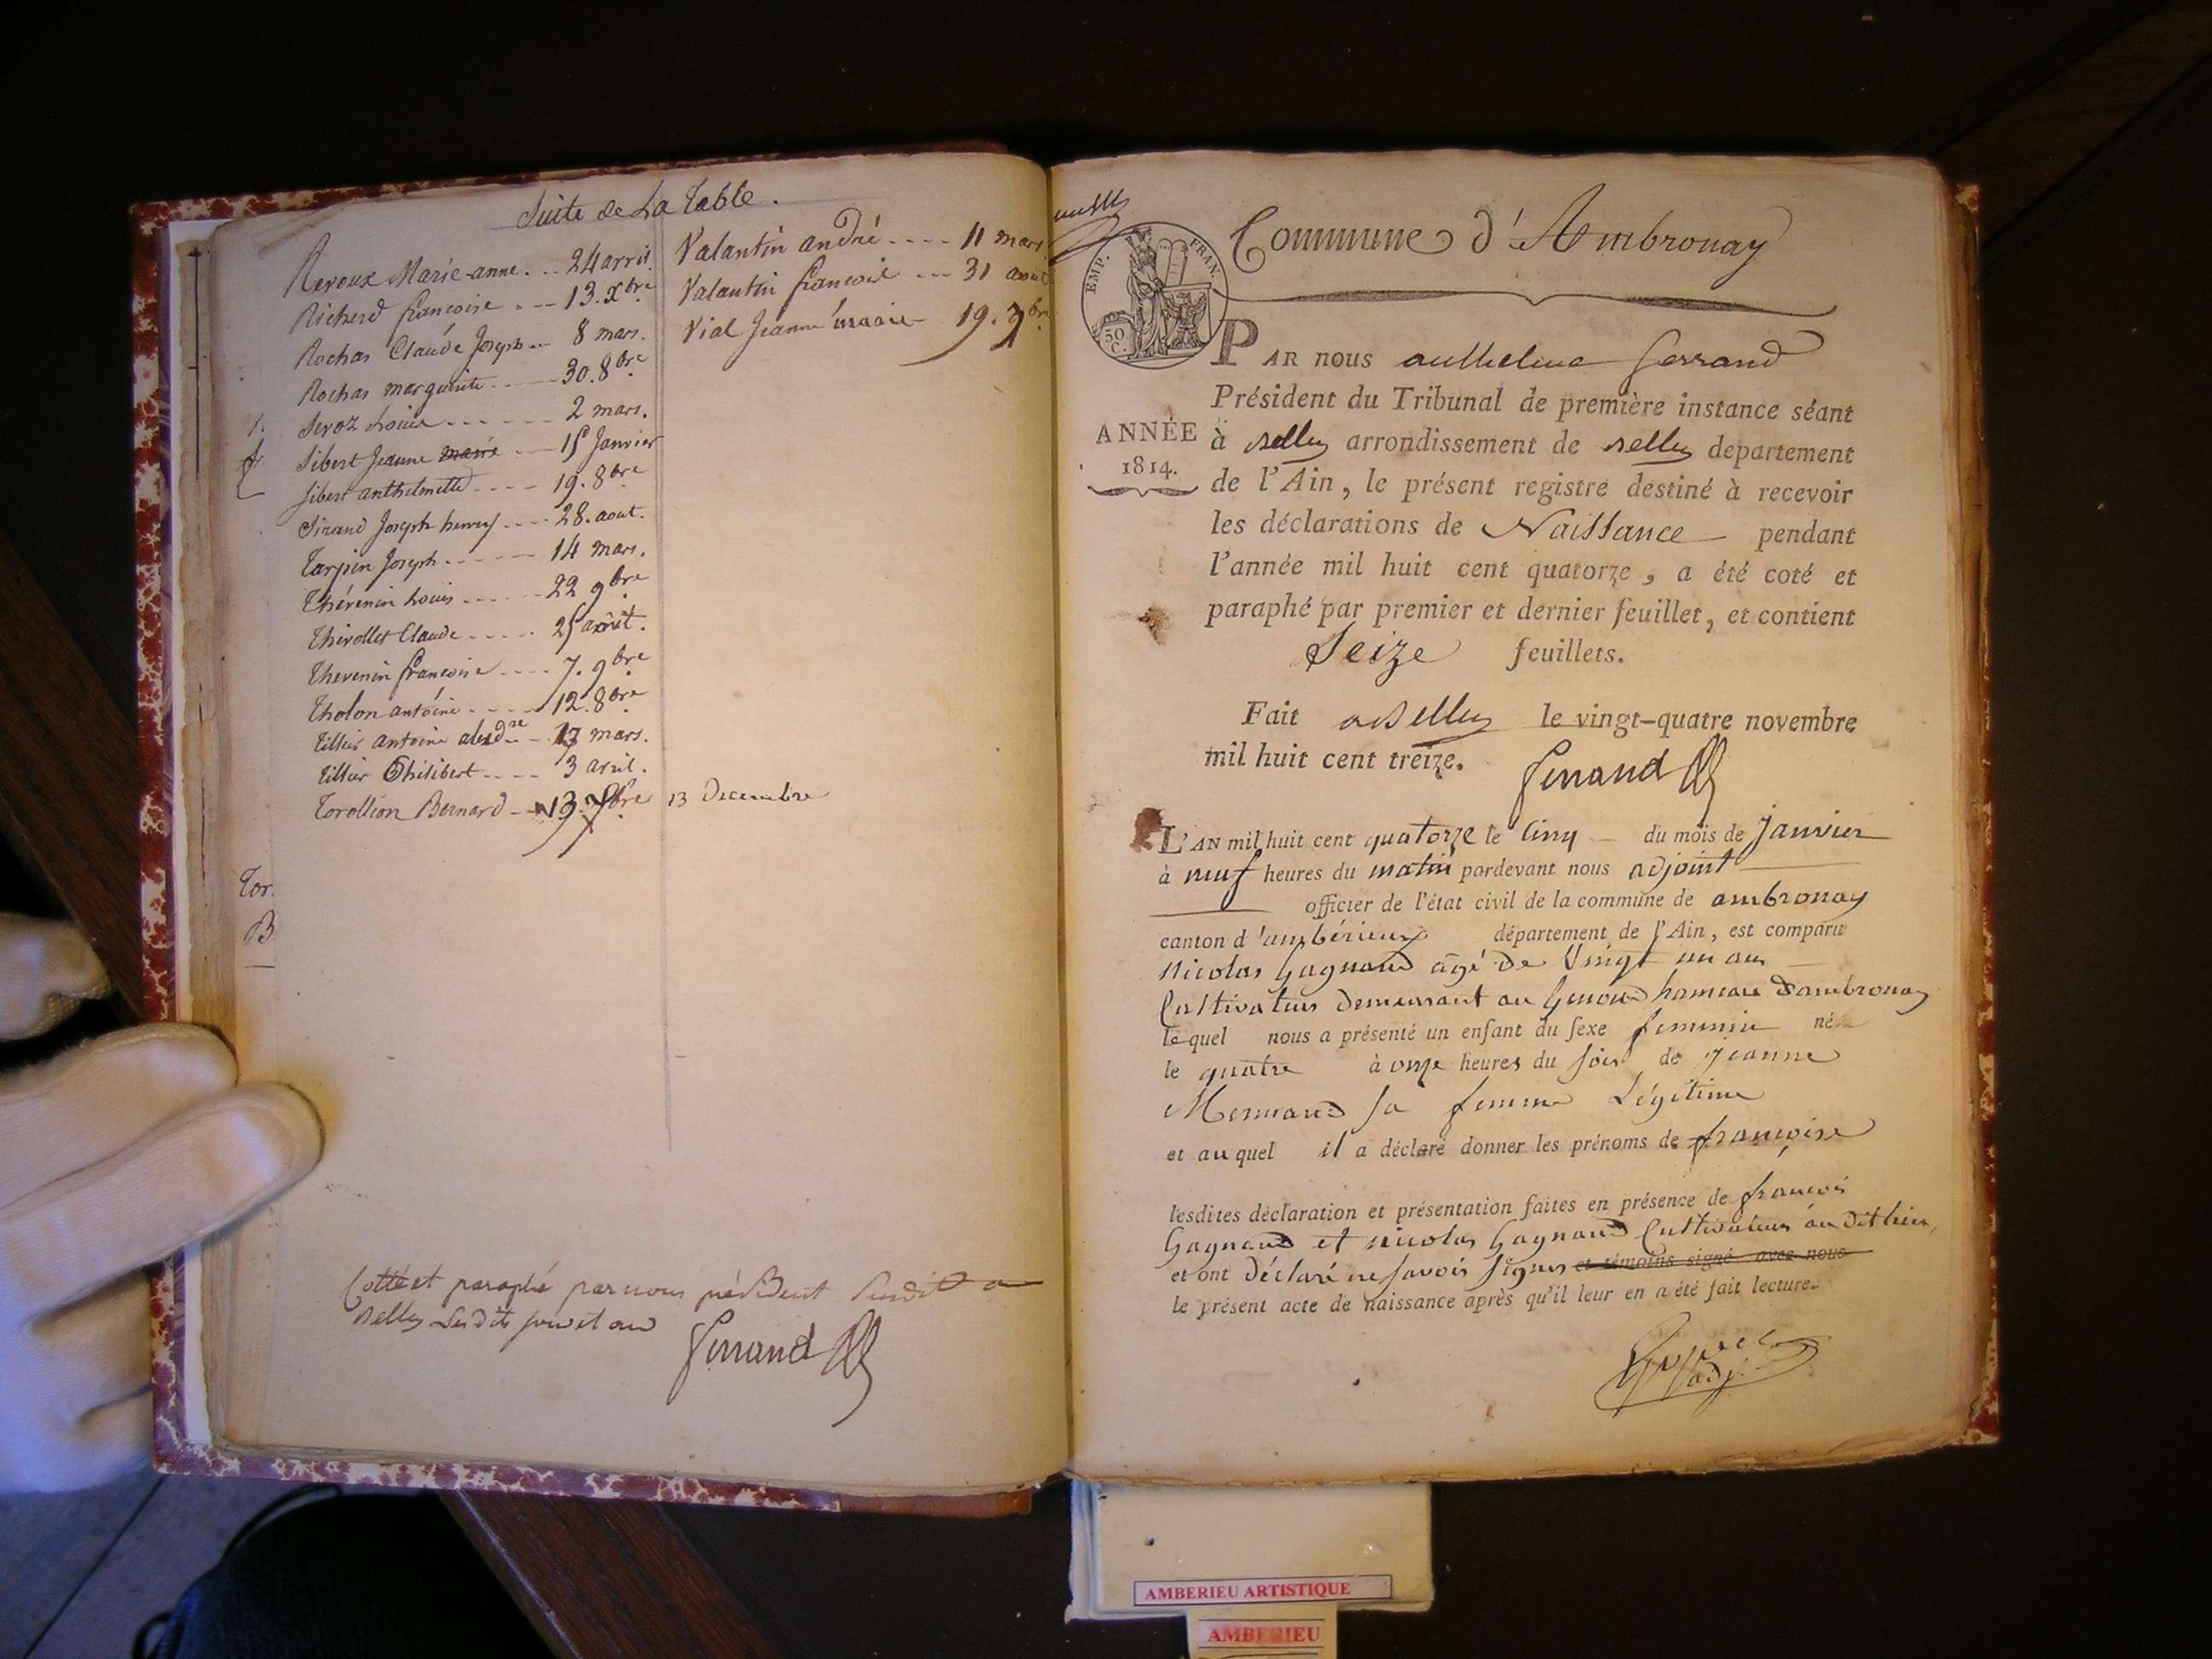 Suite de La Table.
Reroux Marie-anne. .. 24 avril.
Richerd francoise . -- 13. Xbre
Rochas Claude Joseph -- 8 mars.
Rochas marguerite ---- 30. 8bre
Seroz Louise ------ 2 mars.
Sibert Jeanne marie -- 15 Janvier
Sibert anthelmette ---- 19. 8bre
Sirand Joseph henry .... 28. aout.
Tarpin Joseph ------ 14 mars.
Thévenin Louis ------ 22 9bre
Thivollet Claude ----- 25 août.
Thevenin francoise ---- 7. 9bre
Tholon antoine ---- 12. 8bre
Tillier antoine alexdre - 17 mars.
Tillier Philibert ---- 3 avril.
Torollion Bernard -- 13. bre 13 Decembre
Valantin andré .... 11 mars
Valantin francois --- 31 aout
Vial Jeanne marie - 19. bre
Tor.
B.
Cotté et paraphé par nous président Susdit a
Belley Lesdits jour et an
Ferrand
Commune d'Ambronay
EMP. FRAN.
50 C.
ANNÉE
1814.
PAR nous anthelme ferrand
Président du Tribunal de première instance séant
à Belley arrondissement de Belley departement
de l'Ain, le présent registre destiné à recevoir
les déclarations de Naissance pendant
l'année mil huit cent quatorze, a été coté et
paraphé par premier et dernier feuillet, et contient
Seize feuillets.
Fait a Belley le vingt-quatre novembre
mil huit cent treize.
Ferrand
L'AN mil huit cent quatorze le cinq du mois de Janvier
à neuf heures du matin pardevant nous adjoint
officier de l'état civil de la commune de ambronay
canton d'ambérieux département de l'Ain, est comparu
Nicolas Gagnand âgé de Vingt un ans
Cultivateur demeurant au Genoud hameau d'ambronay
lequel nous a présenté un enfant du sexe feminin née
le quatre à onze heures du soir de Jeanne
Mermand sa femme Légitime
et auquel il a déclaré donner les prénoms de françoise
lesdites déclaration et présentation faites en présence de françois
Gagnand et nicolas Gagnand Cultivateurs au dit lieu,
et ont déclaré ne savoir signer et témoins signé avec nous
le présent acte de naissance après qu'il leur en a été fait lecture.
adj.
AMBERIEU ARTISTIQUE
AMBERIEU